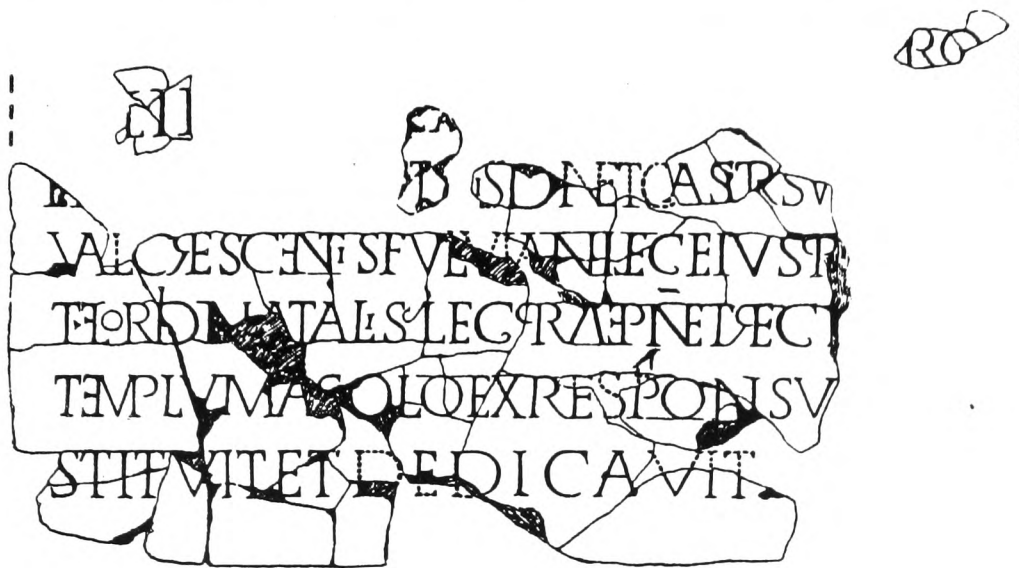 RO
T IS D N ET CASTR SV
VAL CRESCENTIS FVLVIANI LEG EIVS PR
NATALIS LEG PRAEP N ET REG
TEMPLVM A SOLO EX RESPONSV
STITVIT ET DEDICAVIT